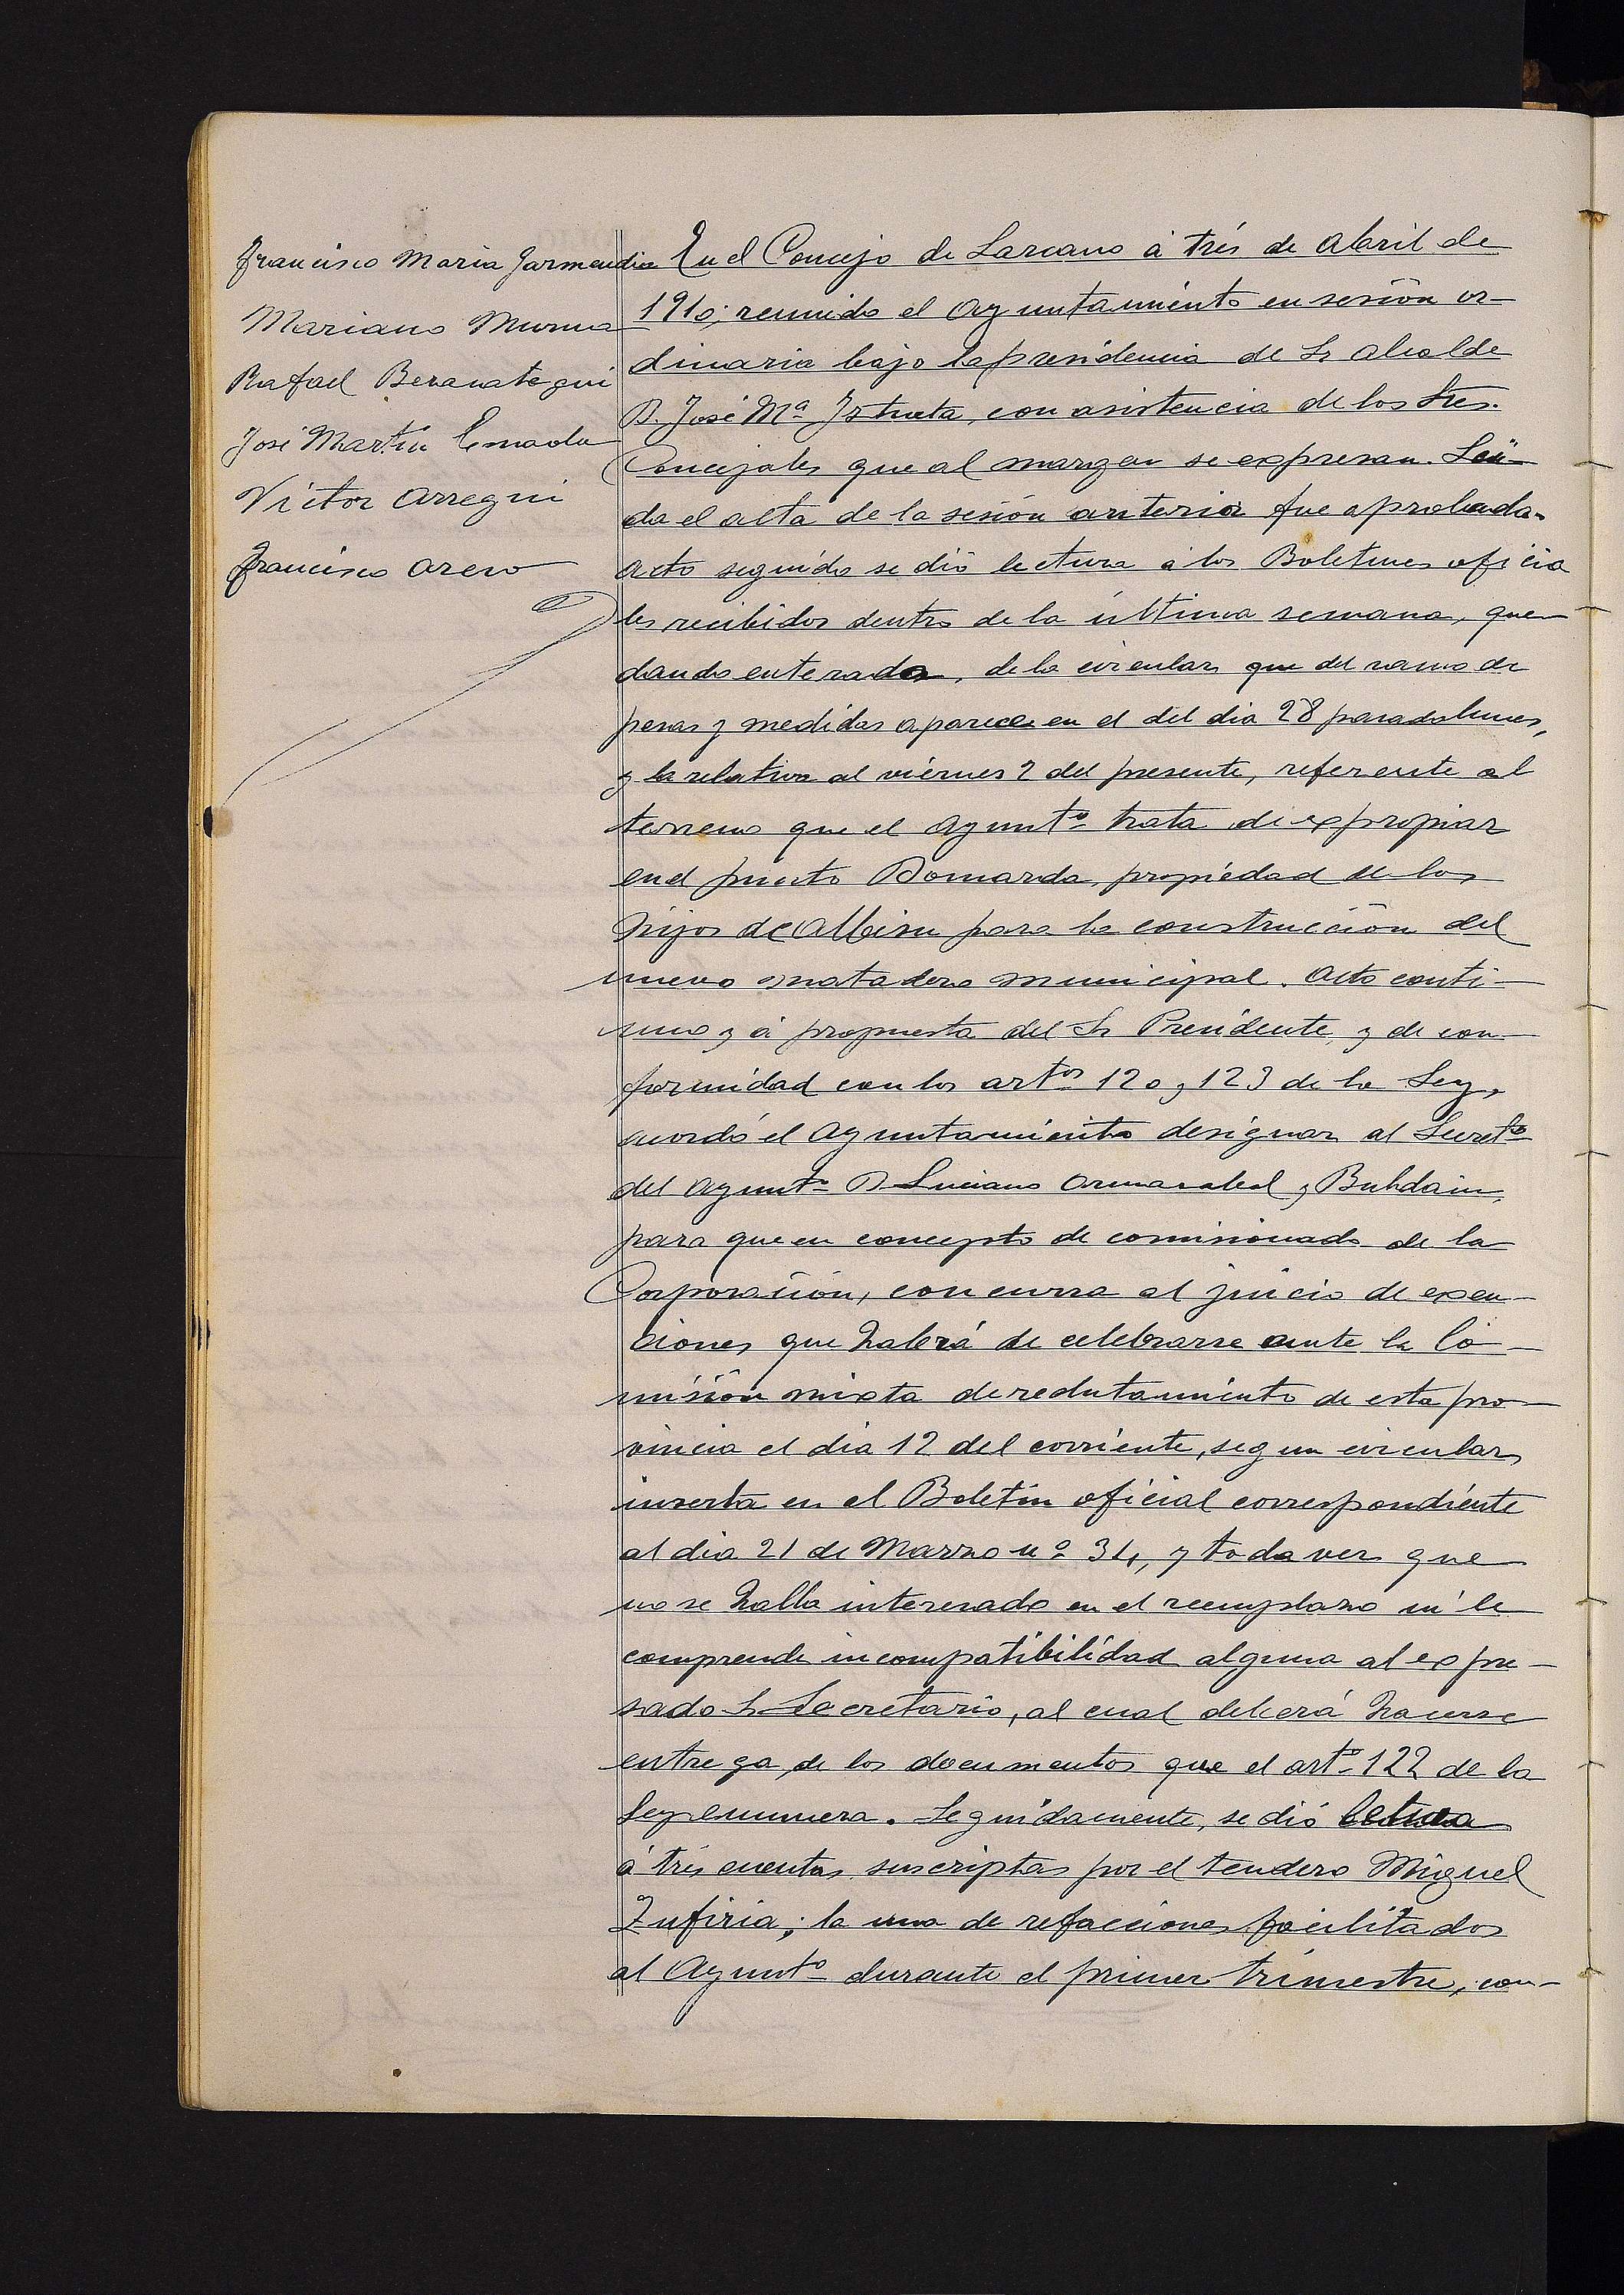 Francisco Maria Garmendia
Mariano Murua
Rafael Beracategui
José Martin
Victor Arregui
Francisco
En el Concejo de Lazcano á trés de Abril de
1910; reunido el Ayuntamiento en sesión or-
dinaria bajo la presidencia de Sr Alcalde
D. José Mª Iztueta, con asistencia de los Sres.
Concejales que al margen se expresan. Lei-
da el alta de la sesión anterior fue aprobada.
Acto seguido se dió lectura á los Boletines oficia
les recibidos dentro de la última semana, que-
dando enterado, de la circular que del ramo de
pesas y medidas aparece en el del dia 28 pasado lunes,
y la relativa al viérnes 2 del presente, referente al
terreno que el Ayuntº trata de expropiar
en el punto Domarda, propiedad de los
hijos de Albisu para la construcción del
nuevo matadero municipal. Acto conti-
nuo y á propuesta del Sr Presidente, y de con-
formidad con los artos 120 y 123 de la Ley,
acordó el Ayuntamiento designar al Secretº
del Ayuntº D Luciano Armasabal y
para que en concepto de comisionado de la
Corporación, concurra al juicio de exen-
ciones que habrá de celebrarse ante la Co-
misión mixta de reclutamiento de esta pro-
vincia el dia 12 del corriente, segun circular
inserta en el Boletin oficial correspondiente
al dia 21 de Marzo nº 34, y toda vez que
no se halla interesado en el reemplazo ni le
comprende incompatibilidad alguna al expre-
sado Sr Secretario, al cual deberá hacerse
entrega de los documentos que el artº 122 de la
Ley enumera. Seguidamente, se dió lectura
á trés cuentas suscriptas por el tendero Miguel
Zufiria; la una de refacciones facilitados
al Ayuntº durante el primer trimestre, con-